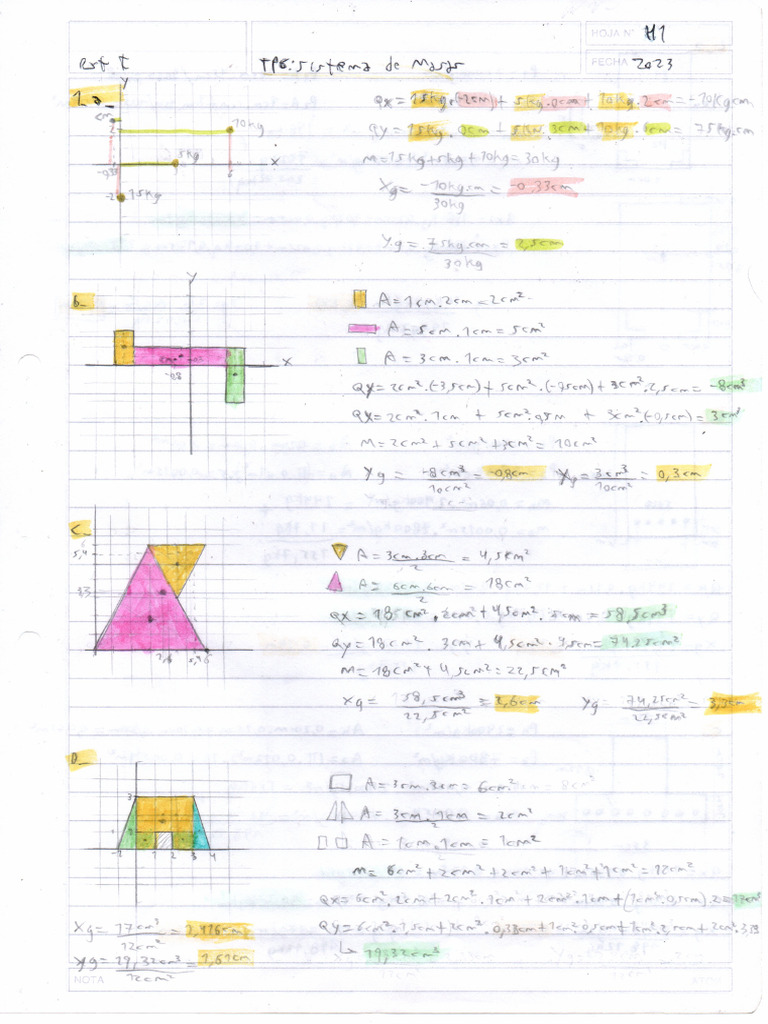 HOJA N° H1
Est I
TP6: Sistema de Masas
FECHA 2023
1_a_
y
Qx = 15kg.(-2cm) + 5kg.0cm + 10kg.2cm = -10kgcm
cm
10kg
2
Qy = 15kg.0cm + 5kg.3cm + 10kg.6cm = 75kg.cm
5kg
x
M = 15kg + 5kg + 10kg = 30kg
-0,33
3
6
-2
15kg
Xg = -10kg.cm / 30kg = -0,33cm
Yg = 75kg.cm / 30kg = 2,5cm
b_
y
A = 1cm.2cm = 2cm²
A = 5cm.1cm = 5cm²
x
A = 3cm.1cm = 3cm²
-0,8
Qy = 2cm².(-3,5cm) + 5cm².(-,5cm) + 3cm².2,5cm = -8cm³
Qx = 2cm².1cm + 5cm².0,5m + 3cm².(-0,5cm) = 3cm³
M = 2cm² + 5cm² + 3cm² = 10cm²
Yg = -8cm³ / 10cm² = -0,8cm Xg = 3cm³ / 10cm² = 0,3cm
C_
6
5,4
A = 3cm.3cm / 2 = 4,5cm²
A = 6cm.6cm / 2 = 18cm²
3,3
Qx = 18cm².2cm² + 4,5cm².5cm = 58,5cm³
Qy = 18cm².3cm + 4,5cm².4,5cm = 74,25cm²
M = 18cm² + 4,5cm² = 22,5cm²
Xg = 58,5cm³ / 22,5cm² = 2,6cm Yg = 74,25cm² / 22,5cm² = 3,3cm
D_
3
A = 3cm.2cm = 6cm²
A = 3cm.1cm / 2 = 2cm²
A = 1cm.1cm = 1cm²
-1 1 2 3 4
M = 6cm² + 2cm² + 2cm² + 1cm² + 1cm² = 12cm²
Qx = 6cm².2cm + 2cm².1cm + 2cm².1cm + (1cm².0,5cm).2 = 17cm³
Xg = 17cm³ / 12cm² = 1,416cm
Qy = 6cm².1,5cm + 2cm².0,33cm + 1cm².0,5cm + 1cm².2,5cm + 2cm².3,33
19,32cm³
Yg = 19,32cm³ / 12cm² = 1,61cm
NOTA